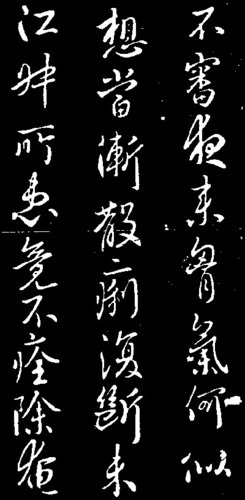 不審夜来胷氣何似
想當漸散痢復斷未
江叔所患竟不痊除奄